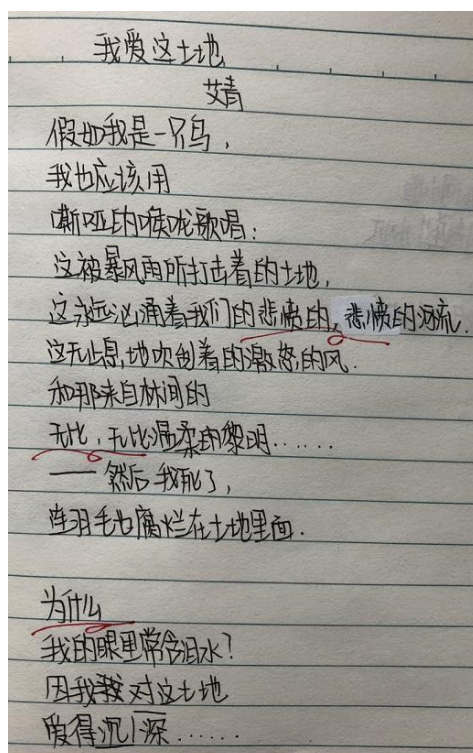 我爱这土地
艾青
假如我是一只鸟，
我也应该用
嘶哑的喉咙歌唱：
这被暴风雨所打击着的土地，
这永远汹涌着我们的悲愤的，悲愤的河流．
这无止息地吹刮着的激怒的风．
和那来自林间的
无比，无比温柔的黎明……
——然后我死了，
连羽毛也腐烂在土地里面．
为什么
我的眼里常含泪水？
因我我对这土地
爱得沉深……